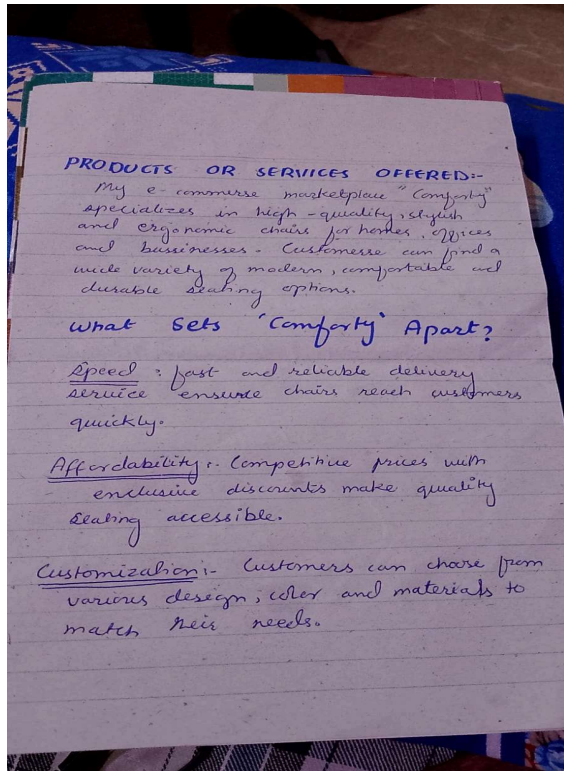 PRODUCTS OR SERVICES OFFERED:-
My e-commerse marketplace "Comforty"
specializes in high-quality, stylish
and ergonomic chairs for homes, offices
and bussinesses. Customerse can find a
wide variety of modern, comfortable and
durable seating options.
What Sets 'Comforty' Apart?
Speed : fast and reliable delivery
service ensure chairs reach customers
quickly.
Affordability :- Competitive prices with
enclusive discounts make quality
seating accessible.
Customization :- Customers can choose from
various design, color and materials to
match their needs.